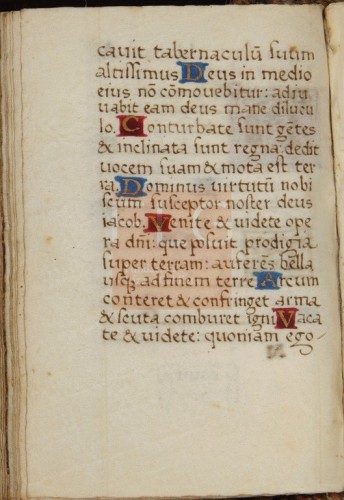 cavit tabernaculū suum
altissimus Deus in medio
eius nō cōmovebitur: adiu
vabit eam deus mane dilucu
lo. Conturbate sunt gētes
& inclinata sunt regna: dedit
vocem suam & mota est ter
ra. Dominus virtutū nobi
scum susceptor noster deus
iacob. Venite & videte ope
ra dn̄i: que posuit prodigia
super terram: auferēs bella
usq; ad finem terre Arcum
conteret & confringet arma
& scuta comburet igni Vaca
te & videte: quoniam ego